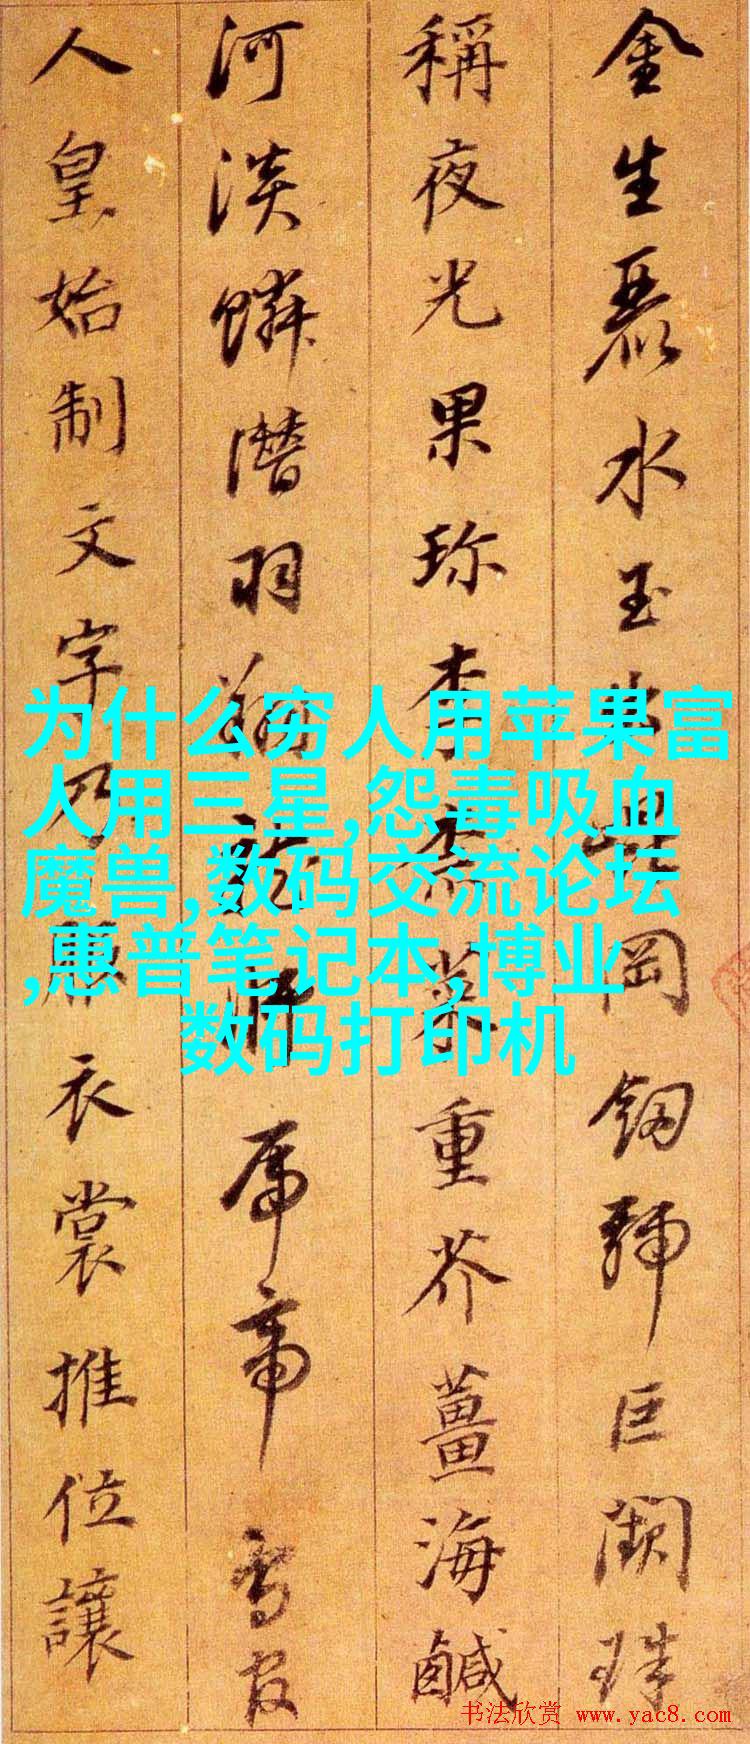 金生麗水玉出崐岡劒號巨闕珠
稱夜光果珎李柰菜重芥薑海鹹
河淡鱗潛羽翔龍師帝鳥官
人皇始制文字乃服衣裳推位讓
为什么穷人用苹果富
人用三星,怨毒吸血
魔兽,数码交流论坛
,惠普笔记本,博业
数码打印机
书法欣赏 www.yac8.com